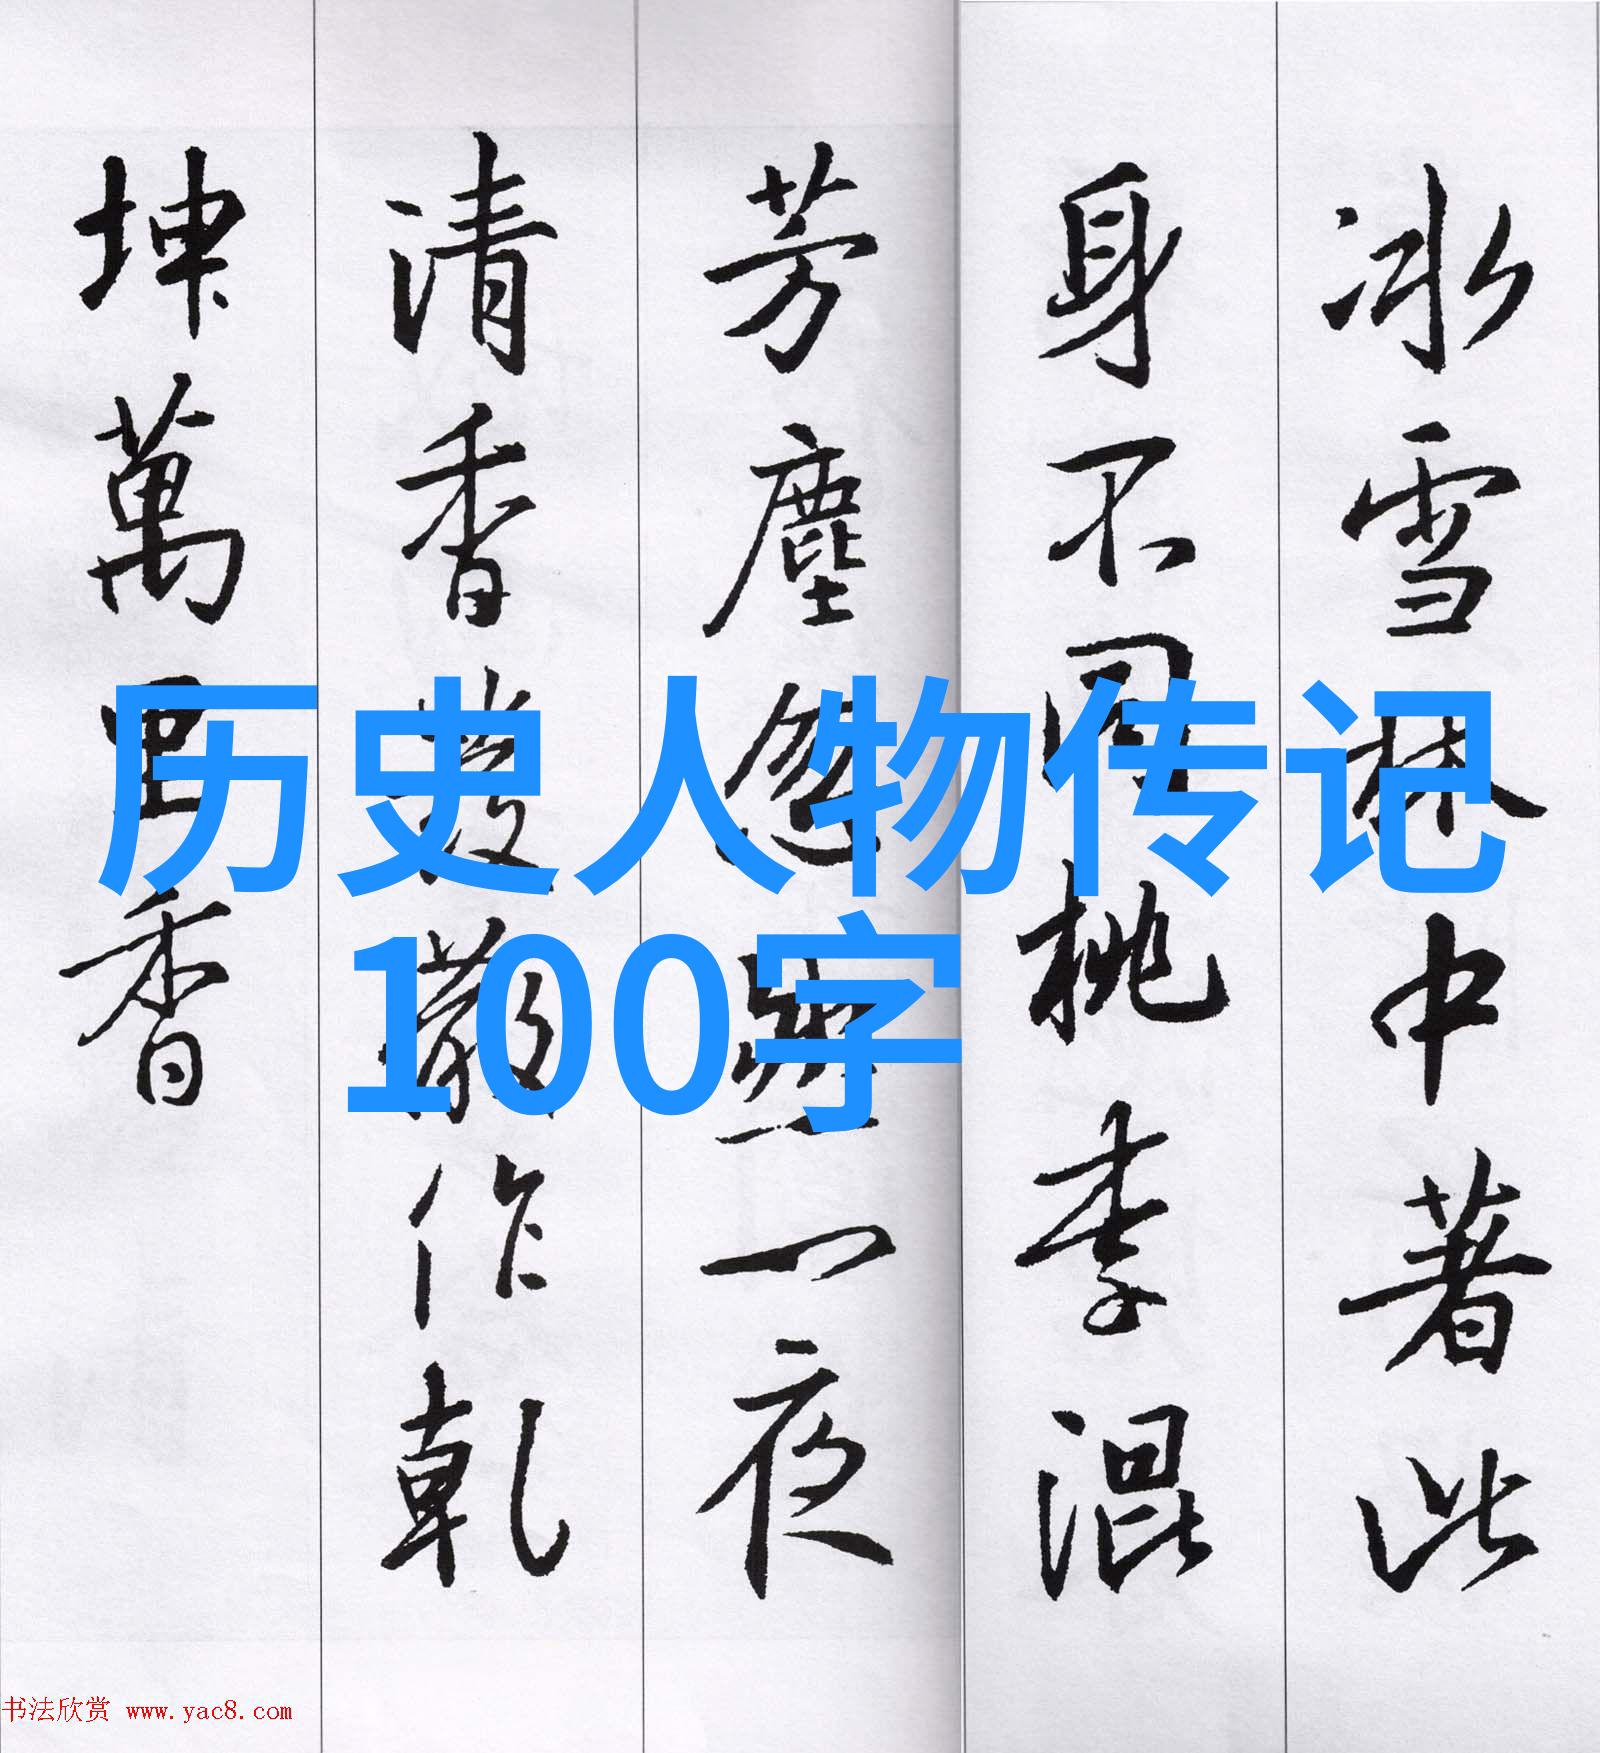 冰雪林中著此
身不同桃李混
芳塵忽然一夜
清香發散作乾
坤萬里香
历史人物传记
100字
书法欣赏 www.yac8.com